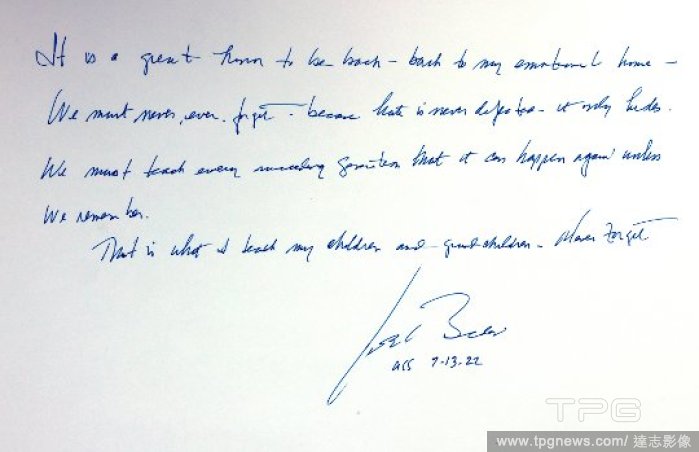 It is a great honor to be back - back to my emotional home -
We must never, ever, forget - because hate is never defeated - it only hides.
We must teach every succeeding generation that it can happen again unless
We remember.
That is what I teach my children and grandchildren - Never Forget
Joe Biden
7-13-22
TPG
www.tpgnews.com/ 達志影像